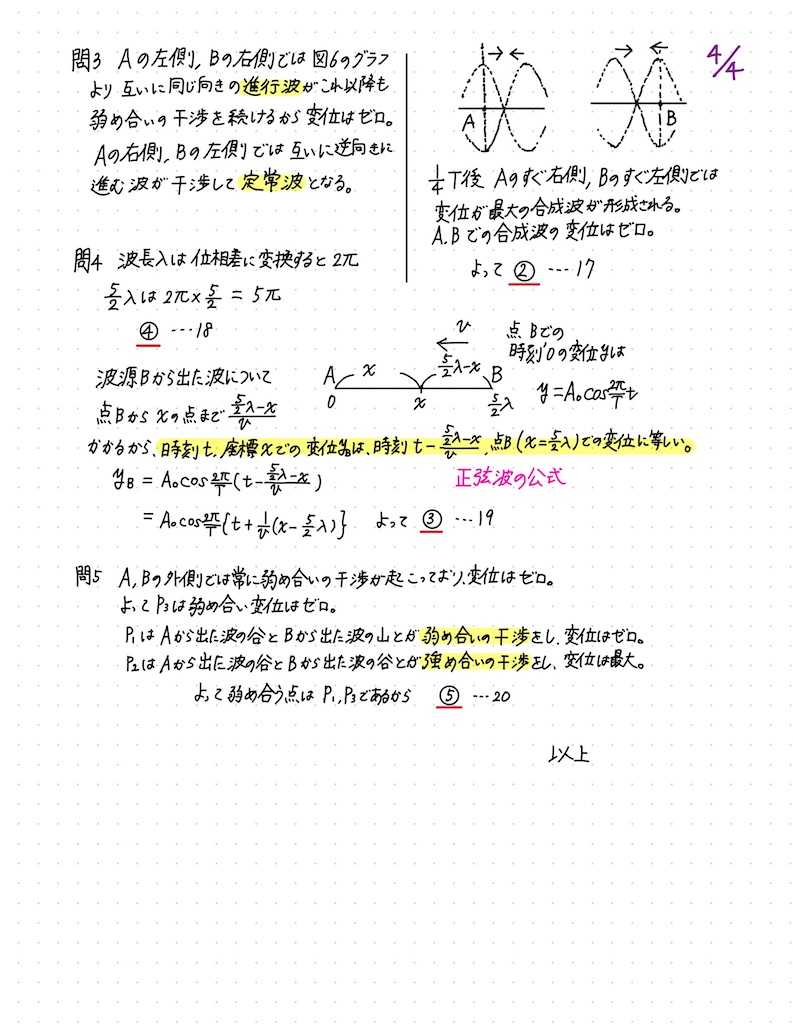 4/4
問3 Aの左側, Bの右側では 図6のグラフ
より 互いに同じ向きの進行波がこれ以降も
弱め合いの干渉を続けるから 変位はゼロ。
Aの右側, Bの左側では 互いに逆向きに
進む波が干渉して 定常波となる。
→ ← → ←
A B
1/4 T後 Aのすぐ右側, Bのすぐ左側では
変位が最大の合成波が形成される。
A, Bでの合成波の変位はゼロ。
よって ② … 17
問4 波長λは位相差に変換すると 2π
5/2 λは 2π × 5/2 = 5π
④ … 18
波源Bから出た波について
点Bから xの点まで (5/2 λ-x)/v
v
A x 5/2 λ-x B
0 x 5/2 λ
点Bでの
時刻0の変位yは
y = A₀cos 2π/T t
かかるから、時刻t, 座標xでの変位yBは、時刻 t - (5/2 λ-x)/v, 点B (x = 5/2 λ)での変位に等しい。
yB = A₀cos 2π/T (t - (5/2 λ-x)/v) 正弦波の公式
= A₀cos 2π/T {t + 1/v (x - 5/2 λ)} よって ③ … 19
問5 A, Bの外側では常に弱め合いの干渉が起こっており、変位はゼロ。
よって P₃は弱め合い変位はゼロ。
P₁は Aから出た波の谷と Bから出た波の山とが 弱め合いの干渉をし、変位はゼロ。
P₂は Aから出た波の谷と Bから出た波の谷とが 強め合いの干渉をし、変位は最大。
よって 弱め合う点は P₁, P₃であるから ⑤ … 20
以上